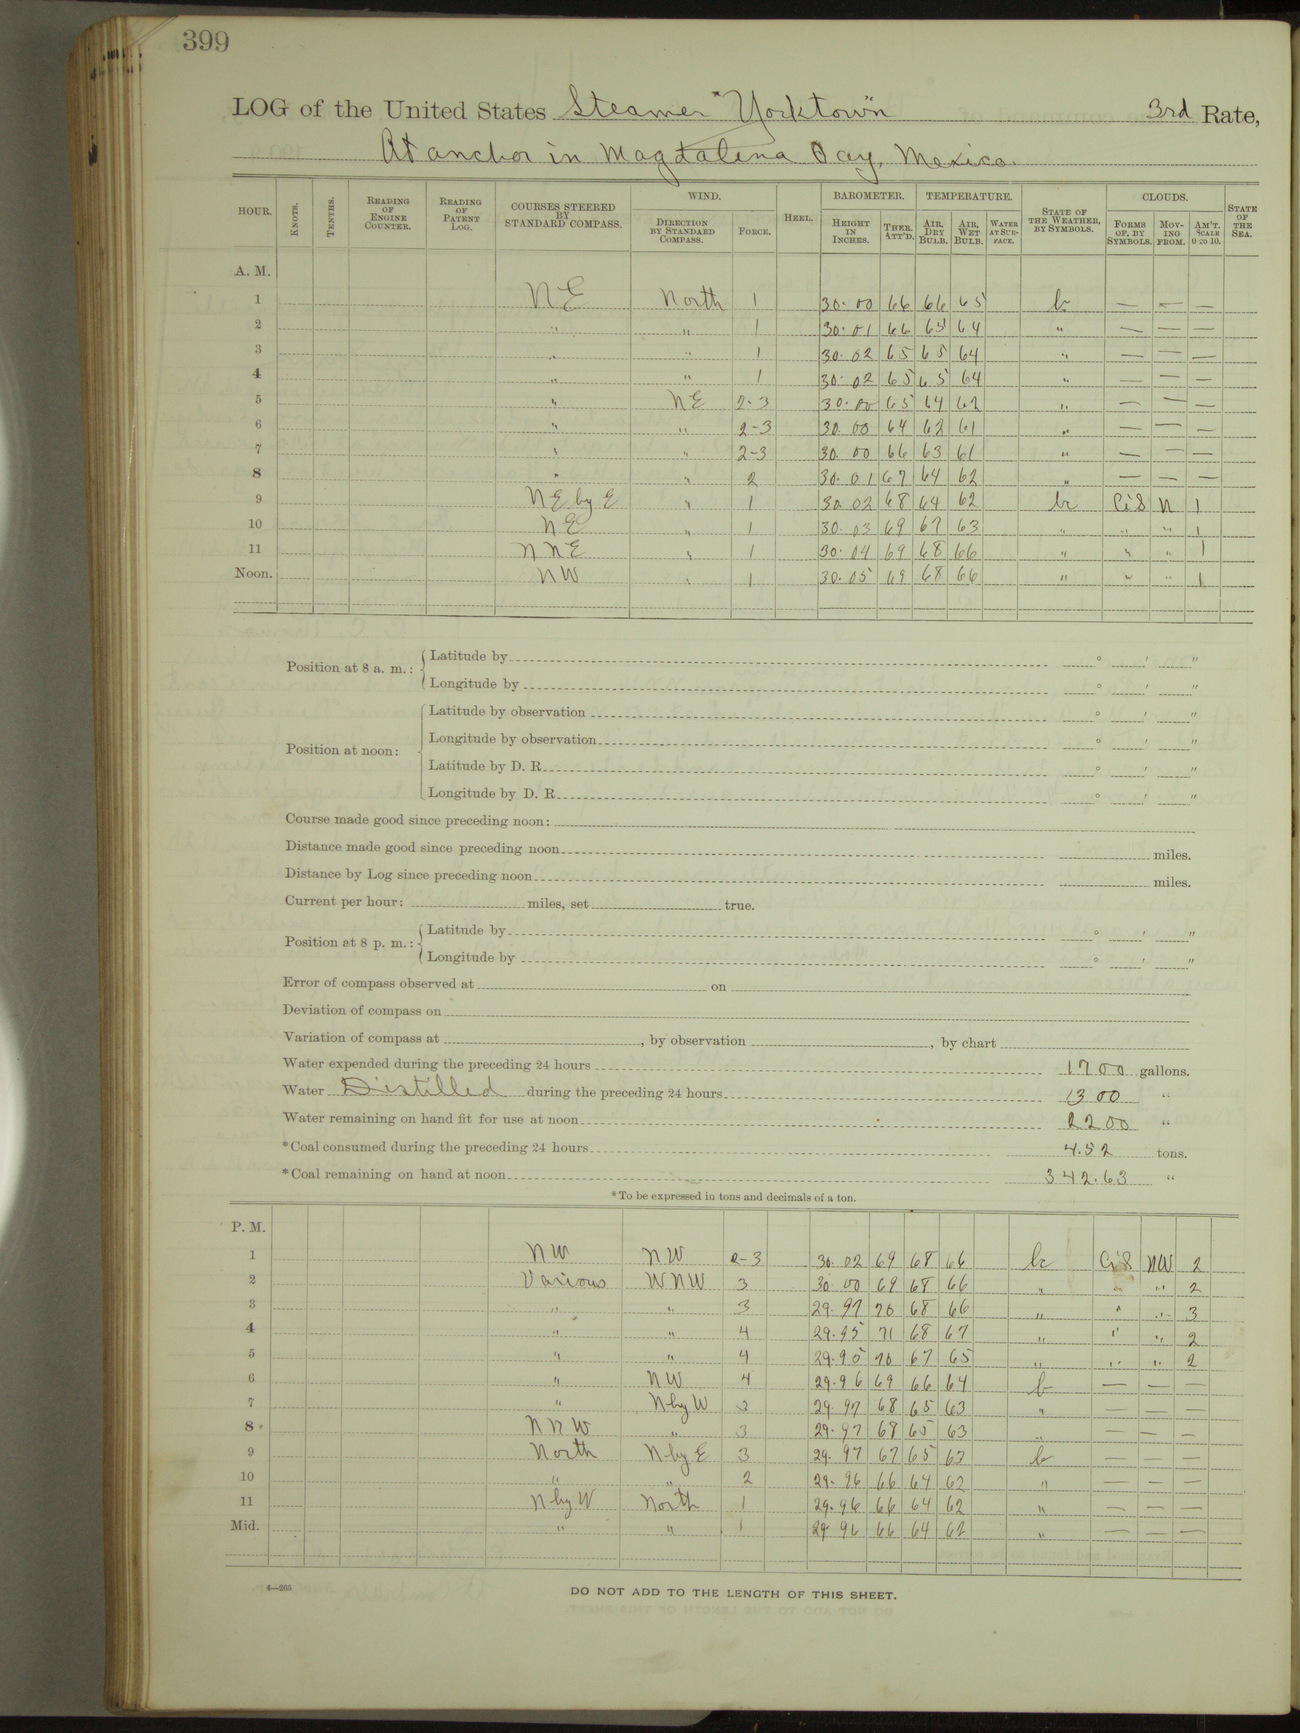 399
LOG of the United States Steamer "Yorktown" 3rd Rate,
At anchor in Magdalena Bay, Mexico.
HOUR. KNOTS. TENTHS. READING OF ENGINE COUNTER. READING OF PATENT LOG. COURSES STEERED BY STANDARD COMPASS. WIND. DIRECTION BY STANDARD COMPASS. FORCE. HEEL. BAROMETER. HEIGHT IN INCHES. THER. ATT'D. TEMPERATURE. AIR, DRY BULB. AIR, WET BULB. WATER AT SURFACE. STATE OF THE WEATHER, BY SYMBOLS. CLOUDS. FORMS OF, BY SYMBOLS. MOVING FROM. AM'T. SCALE 0 TO 10. STATE OF THE SEA.
A. M.
1 NE North 1 30.00 66 66 65 b — — —
2 " " 1 30.01 66 65 64 " — — —
3 " " 1 30.02 65 65 64 " — — —
4 " " 1 30.02 65 65 64 " — — —
5 " NE 2-3 30.00 65 64 62 " — — —
6 " " 2-3 30.00 64 62 61 " — — —
7 " " 2-3 30.00 66 63 61 " — — —
8 " " 2 30.01 67 64 62 " — — —
9 NE by E " 1 30.02 68 64 62 bc CiS N 1
10 NE " 1 30.03 69 67 63 " " " 1
11 NNE " 1 30.04 69 68 66 " " " 1
Noon. NW " 1 30.05 69 68 66 " " " 1
Position at 8 a. m.: Latitude by ° ' "
Longitude by ° ' "
Position at noon: Latitude by observation ° ' "
Longitude by observation ° ' "
Latitude by D. R. ° ' "
Longitude by D. R. ° ' "
Course made good since preceding noon:
Distance made good since preceding noon miles.
Distance by Log since preceding noon miles.
Current per hour: miles, set true.
Position at 8 p. m.: Latitude by ° ' "
Longitude by ° ' "
Error of compass observed at on
Deviation of compass on
Variation of compass at , by observation , by chart
Water expended during the preceding 24 hours 1700 gallons.
Water Distilled during the preceding 24 hours 1300 "
Water remaining on hand fit for use at noon 2200 "
*Coal consumed during the preceding 24 hours 4.52 tons.
*Coal remaining on hand at noon 342.63 "
*To be expressed in tons and decimals of a ton.
P. M.
1 NW NW 2-3 30.02 69 68 66 bc CiS NW 2
2 Various WNW 3 30.00 69 68 66 " " " 2
3 " " 3 29.97 70 68 66 " " " 3
4 " " 4 29.95 71 68 67 " " " 2
5 " " 4 29.95 70 67 65 " " " 2
6 " NW 4 29.96 69 66 64 b — — —
7 " N by W 3 29.97 68 65 63 " — — —
8 NNW " 3 29.97 68 65 63 " — — —
9 North N by E 3 29.97 67 65 63 b — — —
10 " " 2 29.96 66 64 62 " — — —
11 N by W North 1 29.96 66 64 62 " — — —
Mid. " " 1 29.96 66 64 62 " — — —
4—265
DO NOT ADD TO THE LENGTH OF THIS SHEET.